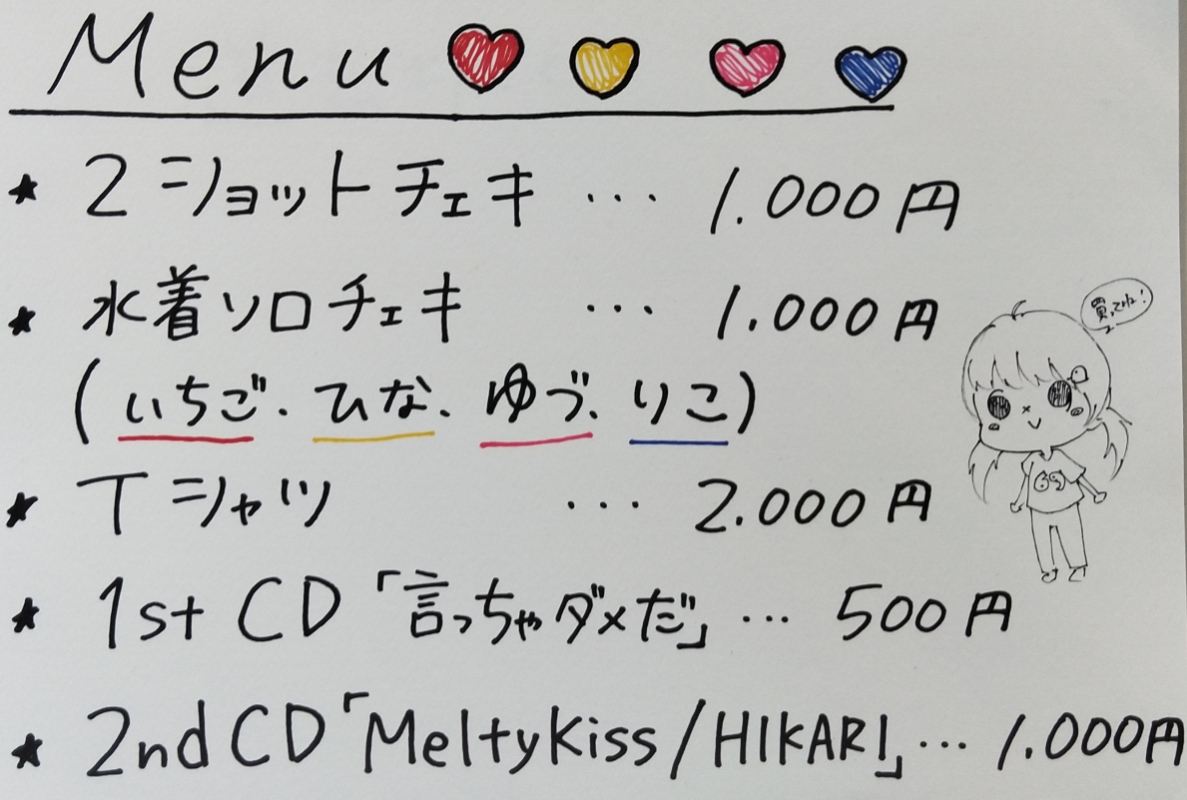 Menu
★ 2ショットチェキ … 1.000円
★ 水着ソロチェキ … 1.000円
買ってね!
(いちご.ひな.ゆづ.りこ)
★ Tシャツ … 2.000円
69
★ 1st CD「言っちゃダメだ」… 500円
★ 2nd CD「MeltyKiss/HIKARI」… 1.000円